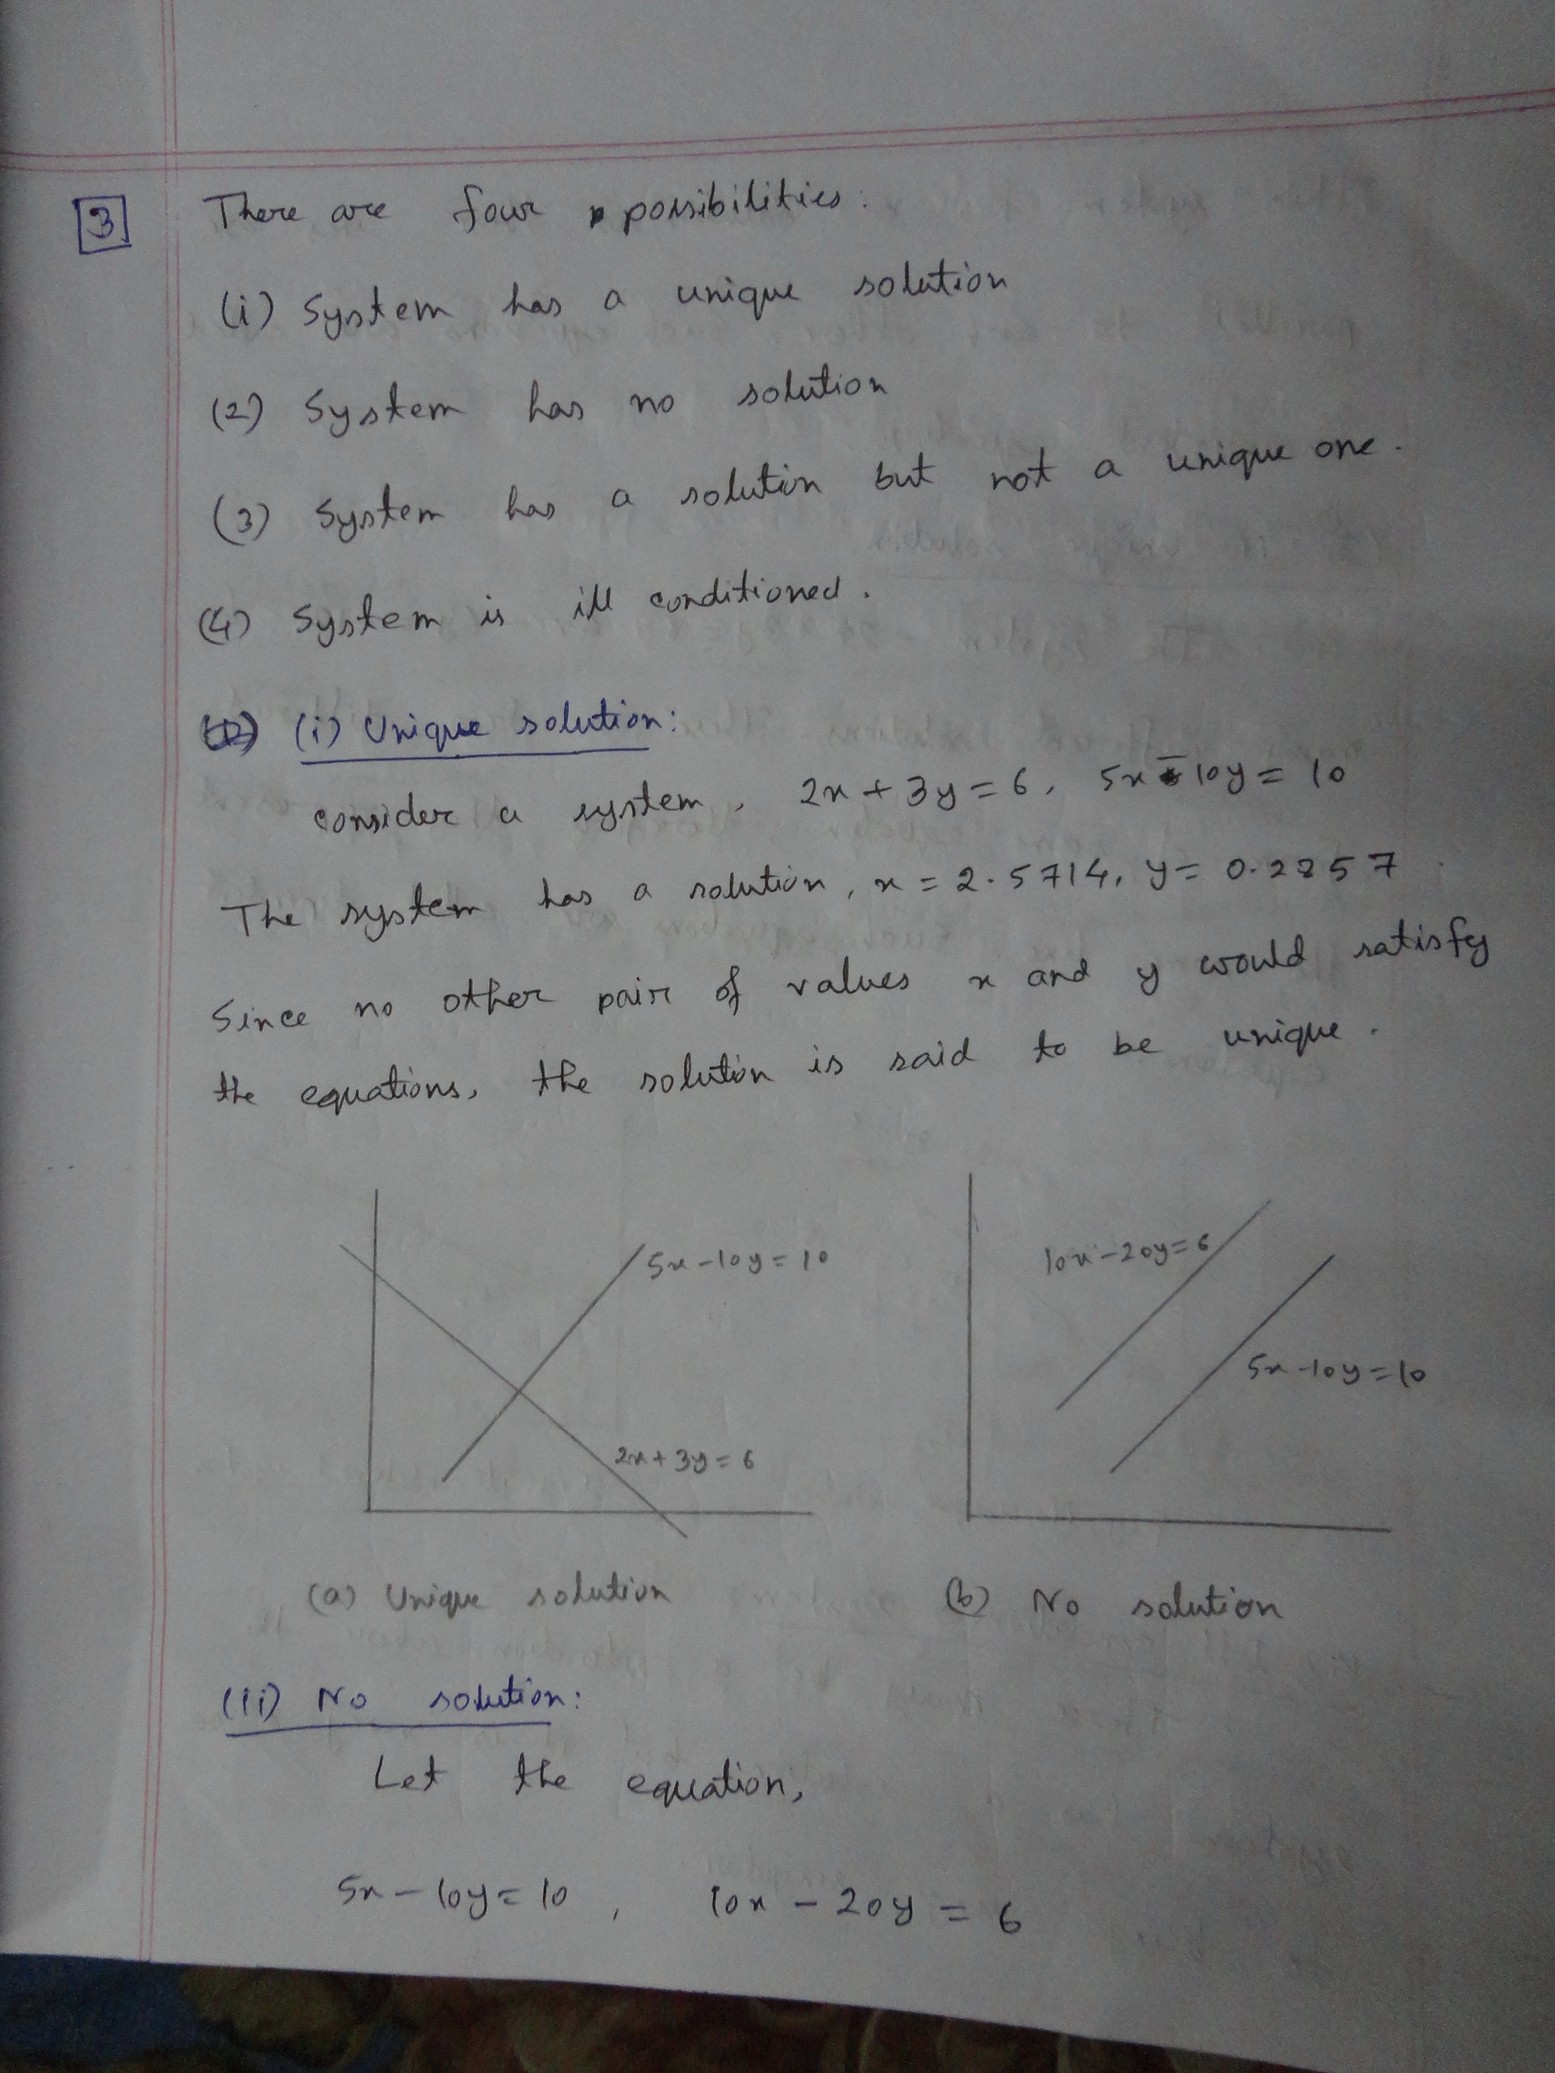 3
There are four possibilities:
(i) System has a unique solution
(2) System has no solution
(3) System has a solution but not a unique one.
(4) System is ill conditioned.
(i) Unique solution:
consider a system, 2x + 3y = 6, 5x - 10y = 10
The system has a solution, x = 2.5714, y = 0.2857
Since no other pair of values x and y would satisfy
the equations, the solution is said to be unique.
5x - 10y = 10
2x + 3y = 6
(a) Unique solution
10x - 20y = 6
5x - 10y = 10
(b) No solution
(ii) No solution:
Let the equation,
5x - 10y = 10, 10x - 20y = 6